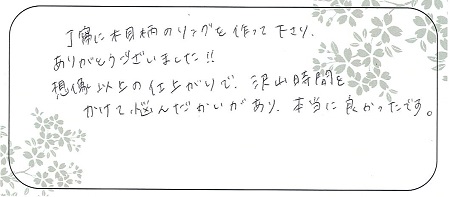 丁寧に木目柄のリングを作って下さり、
ありがとうございました!!
想像以上の仕上がりで、沢山時間を
かけて悩んだかいがあり、本当に良かったです。